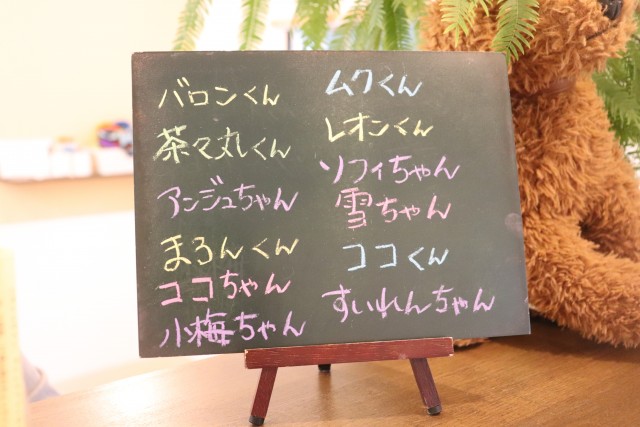 バロンくん
茶々丸くん
アンジュちゃん
まろんくん
ココちゃん
小梅ちゃん
ムクくん
レオンくん
ソフィちゃん
雪ちゃん
ココくん
すいれんちゃん